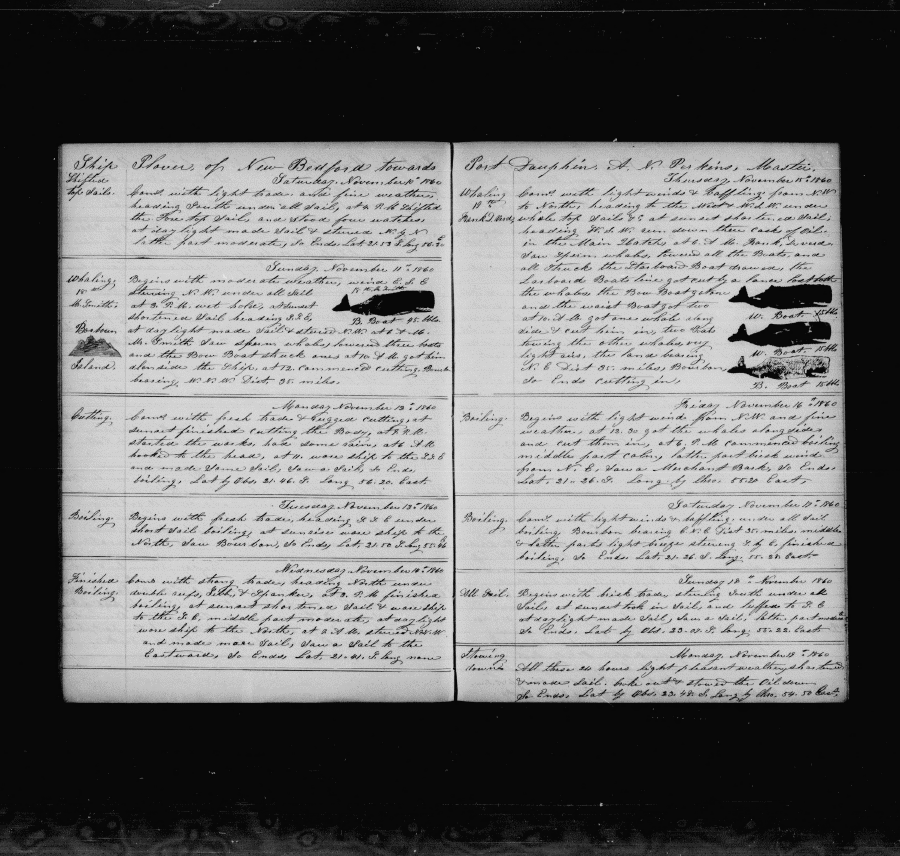 Ship Plover of New Bedford towards
Shifted
top Sails.
Saturday November 10th 1860
Coms. with light trades and fine weather,
heading South under all Sail, at 2 P.M. Shifted
the Fore top Sail, and stood four watches,
at daylight made Sail & steered W. by N.
latter part moderate, So Ends Lat 21.53 S. Long 56.
Sunday. November 11th 1860
Whaling,
Mr Smith.
Bourbon
Island.
Begins with moderate weather, wind E.S.E
Steering N.W. under all Sail
at 3 P.M. wet hold, at Sunset
Shortened Sail heading S.S.E,
B. Boat 45 bbls.
at daylight made Sail & steered N.W. at 6 A.M.
Mr. Smith Saw Sperm whales, lowered three boats
and the Bow Boat struck one, at 10 A.M. got him
alongside the Ship, at 12. commenced cutting, Bourbon
bearing W.N.W. Dist 35. miles.
Monday November 12th 1860
Cutting.
Coms. with fresh trades & rugged Cutting, at
sunset finished cutting the Body, at 7 P.M.
started the works, had some rain, at 6 A.M.
hooked to the head, at 11. wore ship to the S.S.E
and made Some Sail, Saw a Sail, So Ends
boiling, Lat by Obs. 21.46. S. Long 56.20. East.
Tuesday November 13th 1860
Boiling.
Begins with fresh trades, heading S.S.E under
short Sail boiling, at sunrise wore ship to the
North, Saw Bourbon, So Ends, Lat. 21.50 S. Long 55.
Wednesday November 14th 1860
Finished
Boiling.
Coms. with strong trades, heading North under
double reefs, Jibb, & Spanker, at 3. P.M. finished
boiling, at sunset shortened Sail & wore ship
to the S.E, middle part moderate, at daylight
wore ship to the North, at 8 A.M. steered N.W.
and made more Sail, Saw a Sail to the
Eastward, So Ends, Lat. 21.41. S. Long none
Port Dauphin. A. N. Perkins, Master,
Thursday November 15th 1860
Whaling
Coms. with light winds & baffling from N.W
to North, heading to the West & W.S.W. under
whole top Sails &c at sunset shortened Sail,
heading W.S.W. run down three casks of Oil
in the Main Hatch, at 6 A.M. Frank
Saw Sperm whales, lowered all the Boats, and
all Struck the Starboard Boat drawed, the
Larboard Boats line got cast by a lance lost both
the whales, the Bow Boat got one
and the waist Boat got two
at 10 A.M. got one whale along
side & cut him in, two Boats
towing the other whales, very
light airs, the land bearing
N.E Dist 35. miles, Bourbon
So Ends cutting in,
W. Boat. 15 bbls
W. Boat. 15 bbls
B. Boat 15 bbls
Friday November 16th 1860
Boiling.
Begins with light wind from N.W. and fine
weather, at 12.30 got the whales alongside
and cut them in, at 6. P.M. commenced boiling
middle part calm, latter part brisk wind
from N.E. Saw a Merchant Bark, So Ends
Lat. 21-26. S. Long by Chro. 55.20 East,
Saturday November 17th 1860
Boiling.
Coms. with light winds & baffling, under all Sail
boiling, Bourbon bearing E.N.E Dist 35. miles, middle
& latter parts light breeze steering S. by E, finished
boiling, So Ends Lat. 21.26. S. Long. 55.28. East.
Sunday 18th November 1860
All Sail.
Begins with brisk trades, steering South under all
Sail, at sunset took in Sail, and luffed to S.E
at daylight made Sail, Saw a Sail, latter part moderate
So Ends. Lat by Obs. 23.07. S. Long. 55.22. East.
Stowing
down
Monday, November 19th 1860
All these 24 hours light pleasant weather, shortened
& made Sail. broke out & stowed the Oil down
So Ends, Lat by Obs. 23.48. S. Long by Chro. 54.50 East,